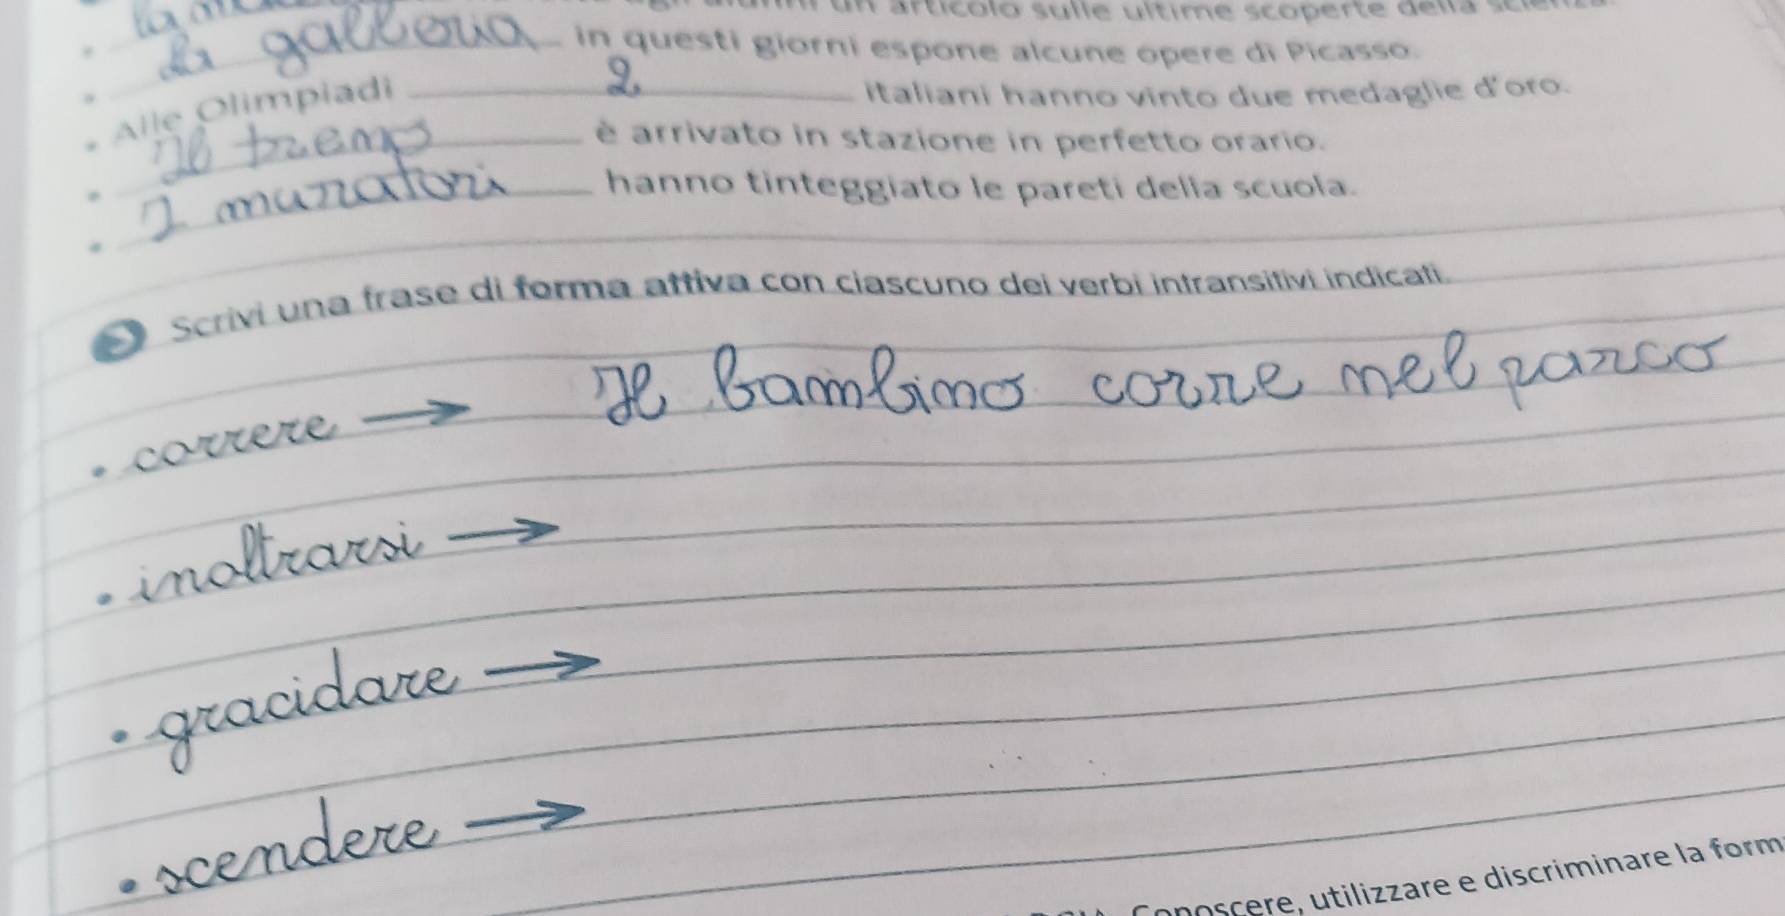 un articolo sulle ultime scoperte della
La galleria in questi giorni espone alcune opere di Picasso.
Alle Olimpiadi 2 italiani hanno vinto due medaglie d'oro.
Il treno è arrivato in stazione in perfetto orario.
I muratori hanno tinteggiato le pareti della scuola.
Scrivi una frase di forma attiva con ciascuno dei verbi intransitivi indicati.
• correre → Il bambino corre nel parco
• inoltrarsi →
• gracidare →
• scendere →
Conoscere, utilizzare e discriminare la form